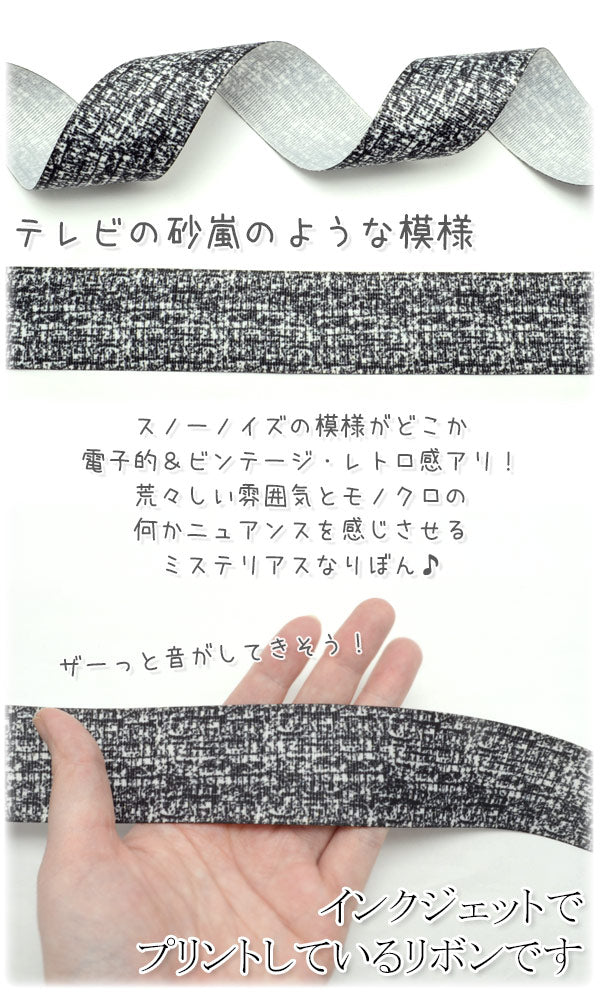 テレビの砂嵐のような模様
スノーノイズの模様がどこか
電子的＆ビンテージ・レトロ感アリ！
荒々しい雰囲気とモノクロの
何かニュアンスを感じさせる
ミステリアスなりぼん♪
ザーっと音がしてきそう！
インクジェットで
プリントしているリボンです